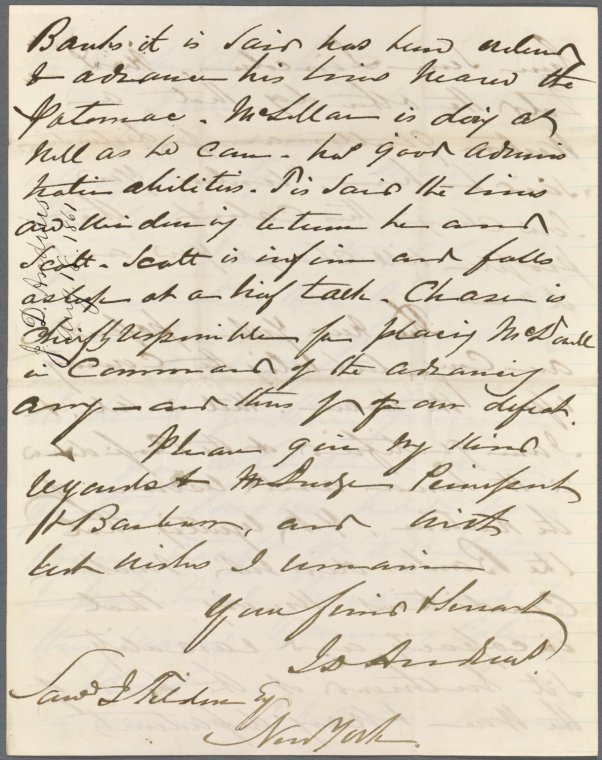 Banks it is said has been ordered
to advance his lines nearer the
Potomac. McLellan is doing as
well as he can - has good adminis
trative abilities. Tis said the lines
are widening between he and
Scott - Scott is infirm and falls
asleep at a brief talk. Chase is
chiefly responsible for placing McDowell
in Command of the advancing
army - and thus for our defeat.
Please give my kind
regards to Judge Pierrepont
& Barbour, and with
best wishes I remain
Your friend & Servant
J D Andrews
Saml J Tilden Esq
New York.
J. D. Andrews
1861